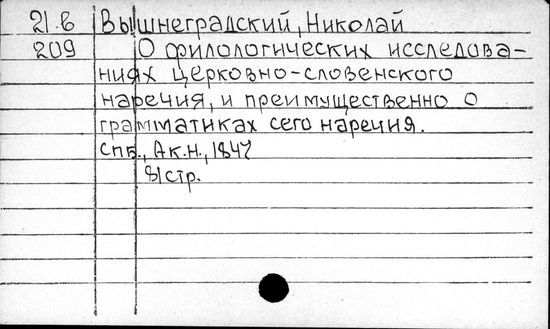 21.в Вышнеградский, Николай
209 О филологических исследова-
ниях церковно-словенского
наречия, и преимущественно о
грамматиках сего наречия.
Спб., Ак.Н., 1847
81стр.